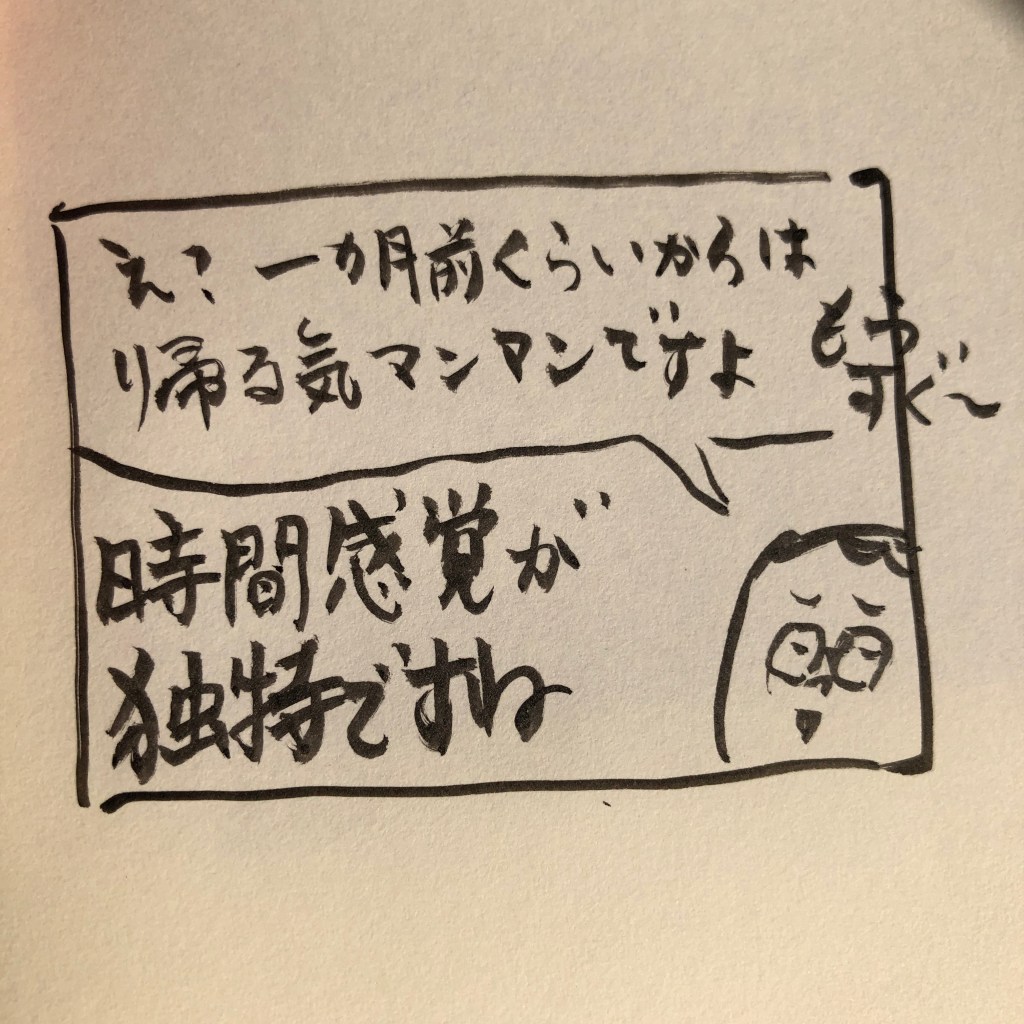 え？一カ月前くらいからは
り帰る気マンマンですよ
もう
すぐ〜
時間感覚が
独特ですね